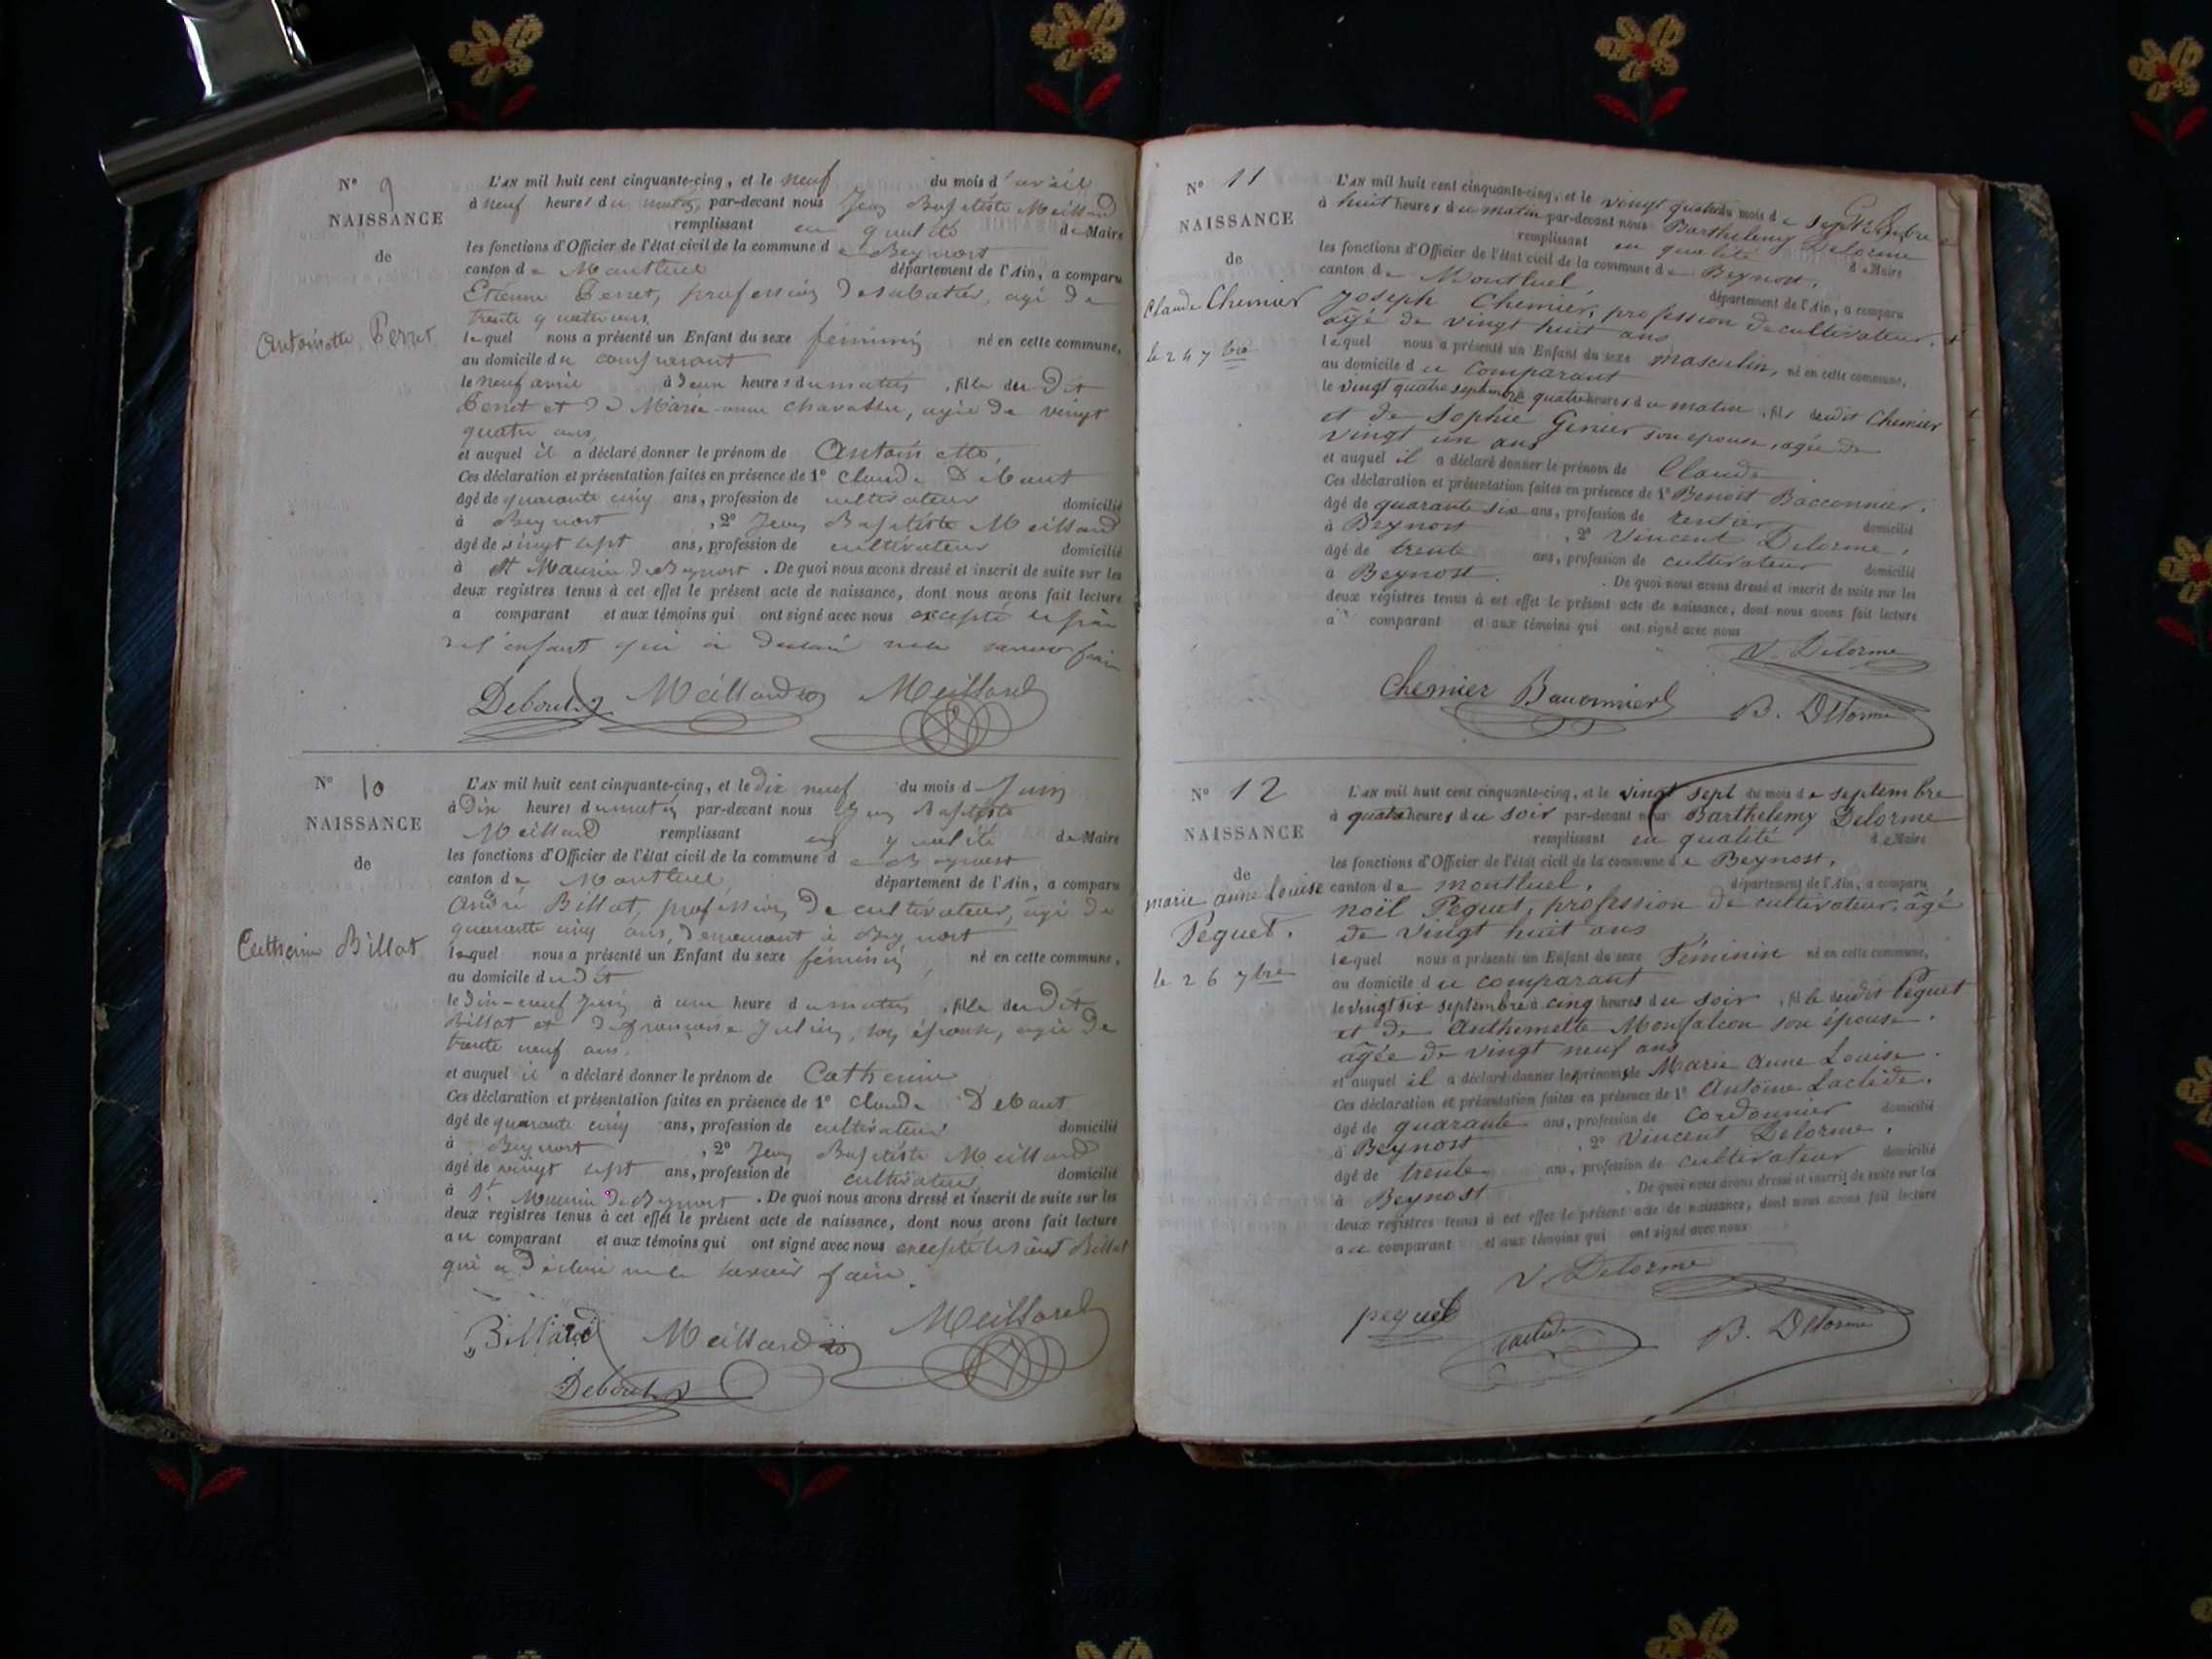 N° 9
NAISSANCE
de
Antoinette Perret
L'AN mil huit cent cinquante-cinq, et le neuf du mois d'avril
à neuf heures du matin, par-devant nous Jean Baptiste Meillard
remplissant en qualité de Maire
les fonctions d'Officier de l'état civil de la commune de Beynost
canton de Montluel département de l'Ain, a comparu
Etienne Perret, profession de sabotier, agé de
trente quatre ans
lequel nous a présenté un Enfant du sexe féminin né en cette commune,
au domicile du comparant
le neuf avril à deux heures du matin, fille du dit
Perret et de Marie anne, agée de vingt
quatre ans,
et auquel il a déclaré donner le prénom de Antoinette,
Ces déclaration et présentation faites en présence de 1° Claude Debout
âgé de quarante cinq ans, profession de cultivateur domicilié
à Beynost, 2° Jean Baptiste Meillard
âgé de vingt sept ans, profession de cultivateur domicilié
à St Maurice de Beynost. De quoi nous avons dressé et inscrit de suite sur les
deux registres tenus à cet effet le présent acte de naissance, dont nous avons fait lecture
a comparant et aux témoins qui ont signé avec nous excepté le père
de l'enfant qui a déclaré ne le savoir faire
Debout Meillard Meillard
N° 10
NAISSANCE
de
Catherine Billat
L'AN mil huit cent cinquante-cinq, et le dix neuf du mois de Juin
à Dix heures du matin par-devant nous Jean Baptiste
Meillard remplissant en qualité de Maire
les fonctions d'Officier de l'état civil de la commune de Beynost
canton de Montluel département de l'Ain, a comparu
André Billat, profession de cultivateur, âgé de
quarante cinq ans, demeurant à Beynost
lequel nous a présenté un Enfant du sexe féminin, né en cette commune,
au domicile dudit
le Dix-neuf Juin à une heure du matin, fille du dit
Billat et de françoise Julien, son épouse, agée de
trente neuf ans.
et auquel il a déclaré donner le prénom de Catherine
Ces déclaration et présentation faites en présence de 1° Claude Debout
âgé de quarante cinq ans, profession de cultivateur domicilié
à Beynost, 2° Jean Baptiste Meillard
âgé de vingt sept ans, profession de cultivateur domicilié
à St Maurice de Beynost. De quoi nous avons dressé et inscrit de suite sur les
deux registres tenus à cet effet le présent acte de naissance, dont nous avons fait lecture
au comparant et aux témoins qui ont signé avec nous excepté le sieur Billat
qui a déclaré ne le savoir faire.
Billard Meillard Meillard
Debout
N° 11
NAISSANCE
de
Claude Chemier
le 24 7bre
L'AN mil huit cent cinquante-cinq, et le vingt quatre du mois de septembre
à huit heures du matin par-devant nous Barthelemy Delorme
remplissant en qualité de Maire
les fonctions d'Officier de l'état civil de la commune de Beynost,
canton de Montluel, département de l'Ain, a comparu
Joseph Chemier, profession de cultivateur,
âgé de vingt huit ans
lequel nous a présenté un Enfant du sexe masculin, né en cette commune,
au domicile du comparant
le vingt quatre septembre à quatre heures du matin, fils dudit Chemier
et de Sophie Genier son épouse, agée de
vingt un ans
et auquel il a déclaré donner le prénom de Claude
Ces déclaration et présentation faites en présence de 1° Benoit Bacconnier,
âgé de quarante six ans, profession de rentier domicilié
à Beynost, 2° Vincent Delorme,
âgé de trente ans, profession de cultivateur domicilié
à Beynost. De quoi nous avons dressé et inscrit de suite sur les
deux registres tenus à cet effet le présent acte de naissance, dont nous avons fait lecture
a comparant et aux témoins qui ont signé avec nous
V. Delorme
Chemier Baconnier B. Delorme
N° 12
NAISSANCE
de
marie anne Louise
Peguet.
le 26 7bre
L'AN mil huit cent cinquante-cinq, et le vingt sept du mois de septembre
à quatre heures du soir par-devant nous Barthelemy Delorme
remplissant en qualité de Maire
les fonctions d'Officier de l'état civil de la commune de Beynost,
canton de montluel, département de l'Ain, a comparu
noël Peguet, profession de cultivateur, âgé
de vingt huit ans
lequel nous a présenté un Enfant du sexe Féminin né en cette commune,
au domicile du comparant
le vingt six septembre à cinq heures du soir, fille dudit Peguet
et de Anthemette Monfalcon son épouse.
âgée de vingt neuf ans
et auquel il a déclaré donner les prénoms de Marie Anne Louise.
Ces déclaration et présentation faites en présence de 1° Antoine Laclède.
âgé de quarante ans, profession de cordonnier domicilié
à Beynost, 2° Vincent Delorme,
âgé de trente ans, profession de cultivateur domicilié
à Beynost. De quoi nous avons dressé et inscrit de suite sur les
deux registres tenus à cet effet le présent acte de naissance, dont nous avons fait lecture
au comparant et aux témoins qui ont signé avec nous
V. Delorme
peguet Laclède B. Delorme